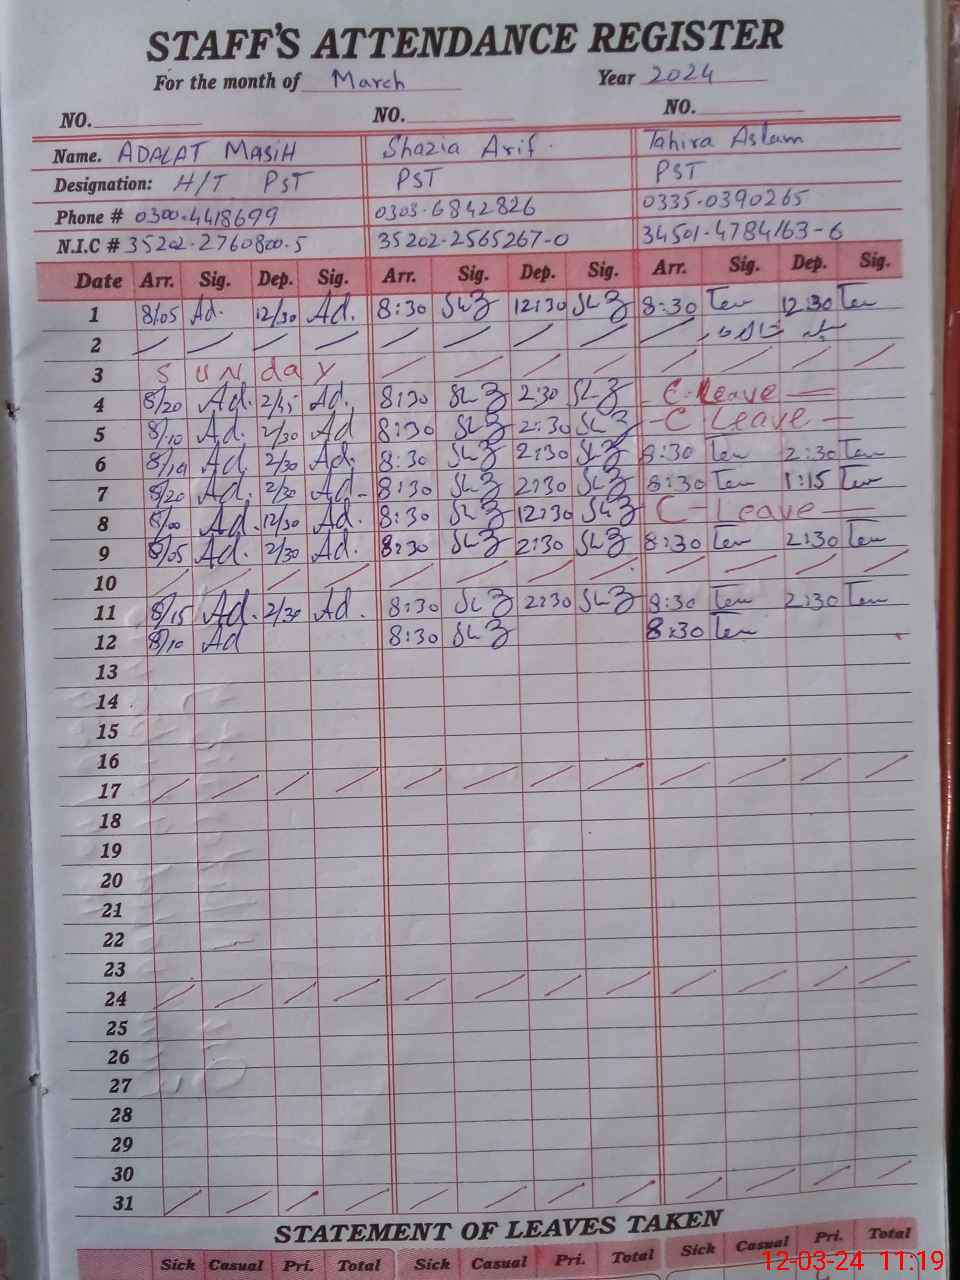 STAFF'S ATTENDANCE REGISTER
For the month of March Year 2024
NO. NO. NO.
Name. ADALAT MASIH Shazia Arif. Tahira Aslam
Designation: H/T PST PST PST
Phone # 0300-4418699 0303-6842826 0335-0390265
N.I.C # 35202-2760800-5 35202-2565267-0 34501-4784163-6
Date Arr. Sig. Dep. Sig. Arr. Sig. Dep. Sig. Arr. Sig. Dep. Sig.
1 8/05 Ad. 12/30 Ad. 8:30 12:30 8:30 12:30
2
3 SUNday
4 8/20 Ad. Ad. 8:30 2:30 C-Leave
5 8/10 Ad. 2/30 Ad 8:30 2:30 C Leave
6 Ad 2/30 Ad. 8:30 2:30 8:30 2:30
7 8/20 Ad. 2/30 Ad 8:30 2:30 8:30 1:15
8 8/00 Ad. 12/30 Ad. 8:30 12:30 C-Leave
9 8/05 Ad. 2/30 Ad. 8:30 2:30 8:30 2:30
10
11 8/15 Ad. 2/30 Ad. 8:30 2:30 8:30 2:30
12 8/10 Ad 8:30 8:30
13
14
15
16
17
18
19
20
21
22
23
24
25
26
27
28
29
30
31
STATEMENT OF LEAVES TAKEN
Sick Casual Pri. Total Sick Casual Pri. Total Sick Casual Pri. Total
12-03-24 11:19